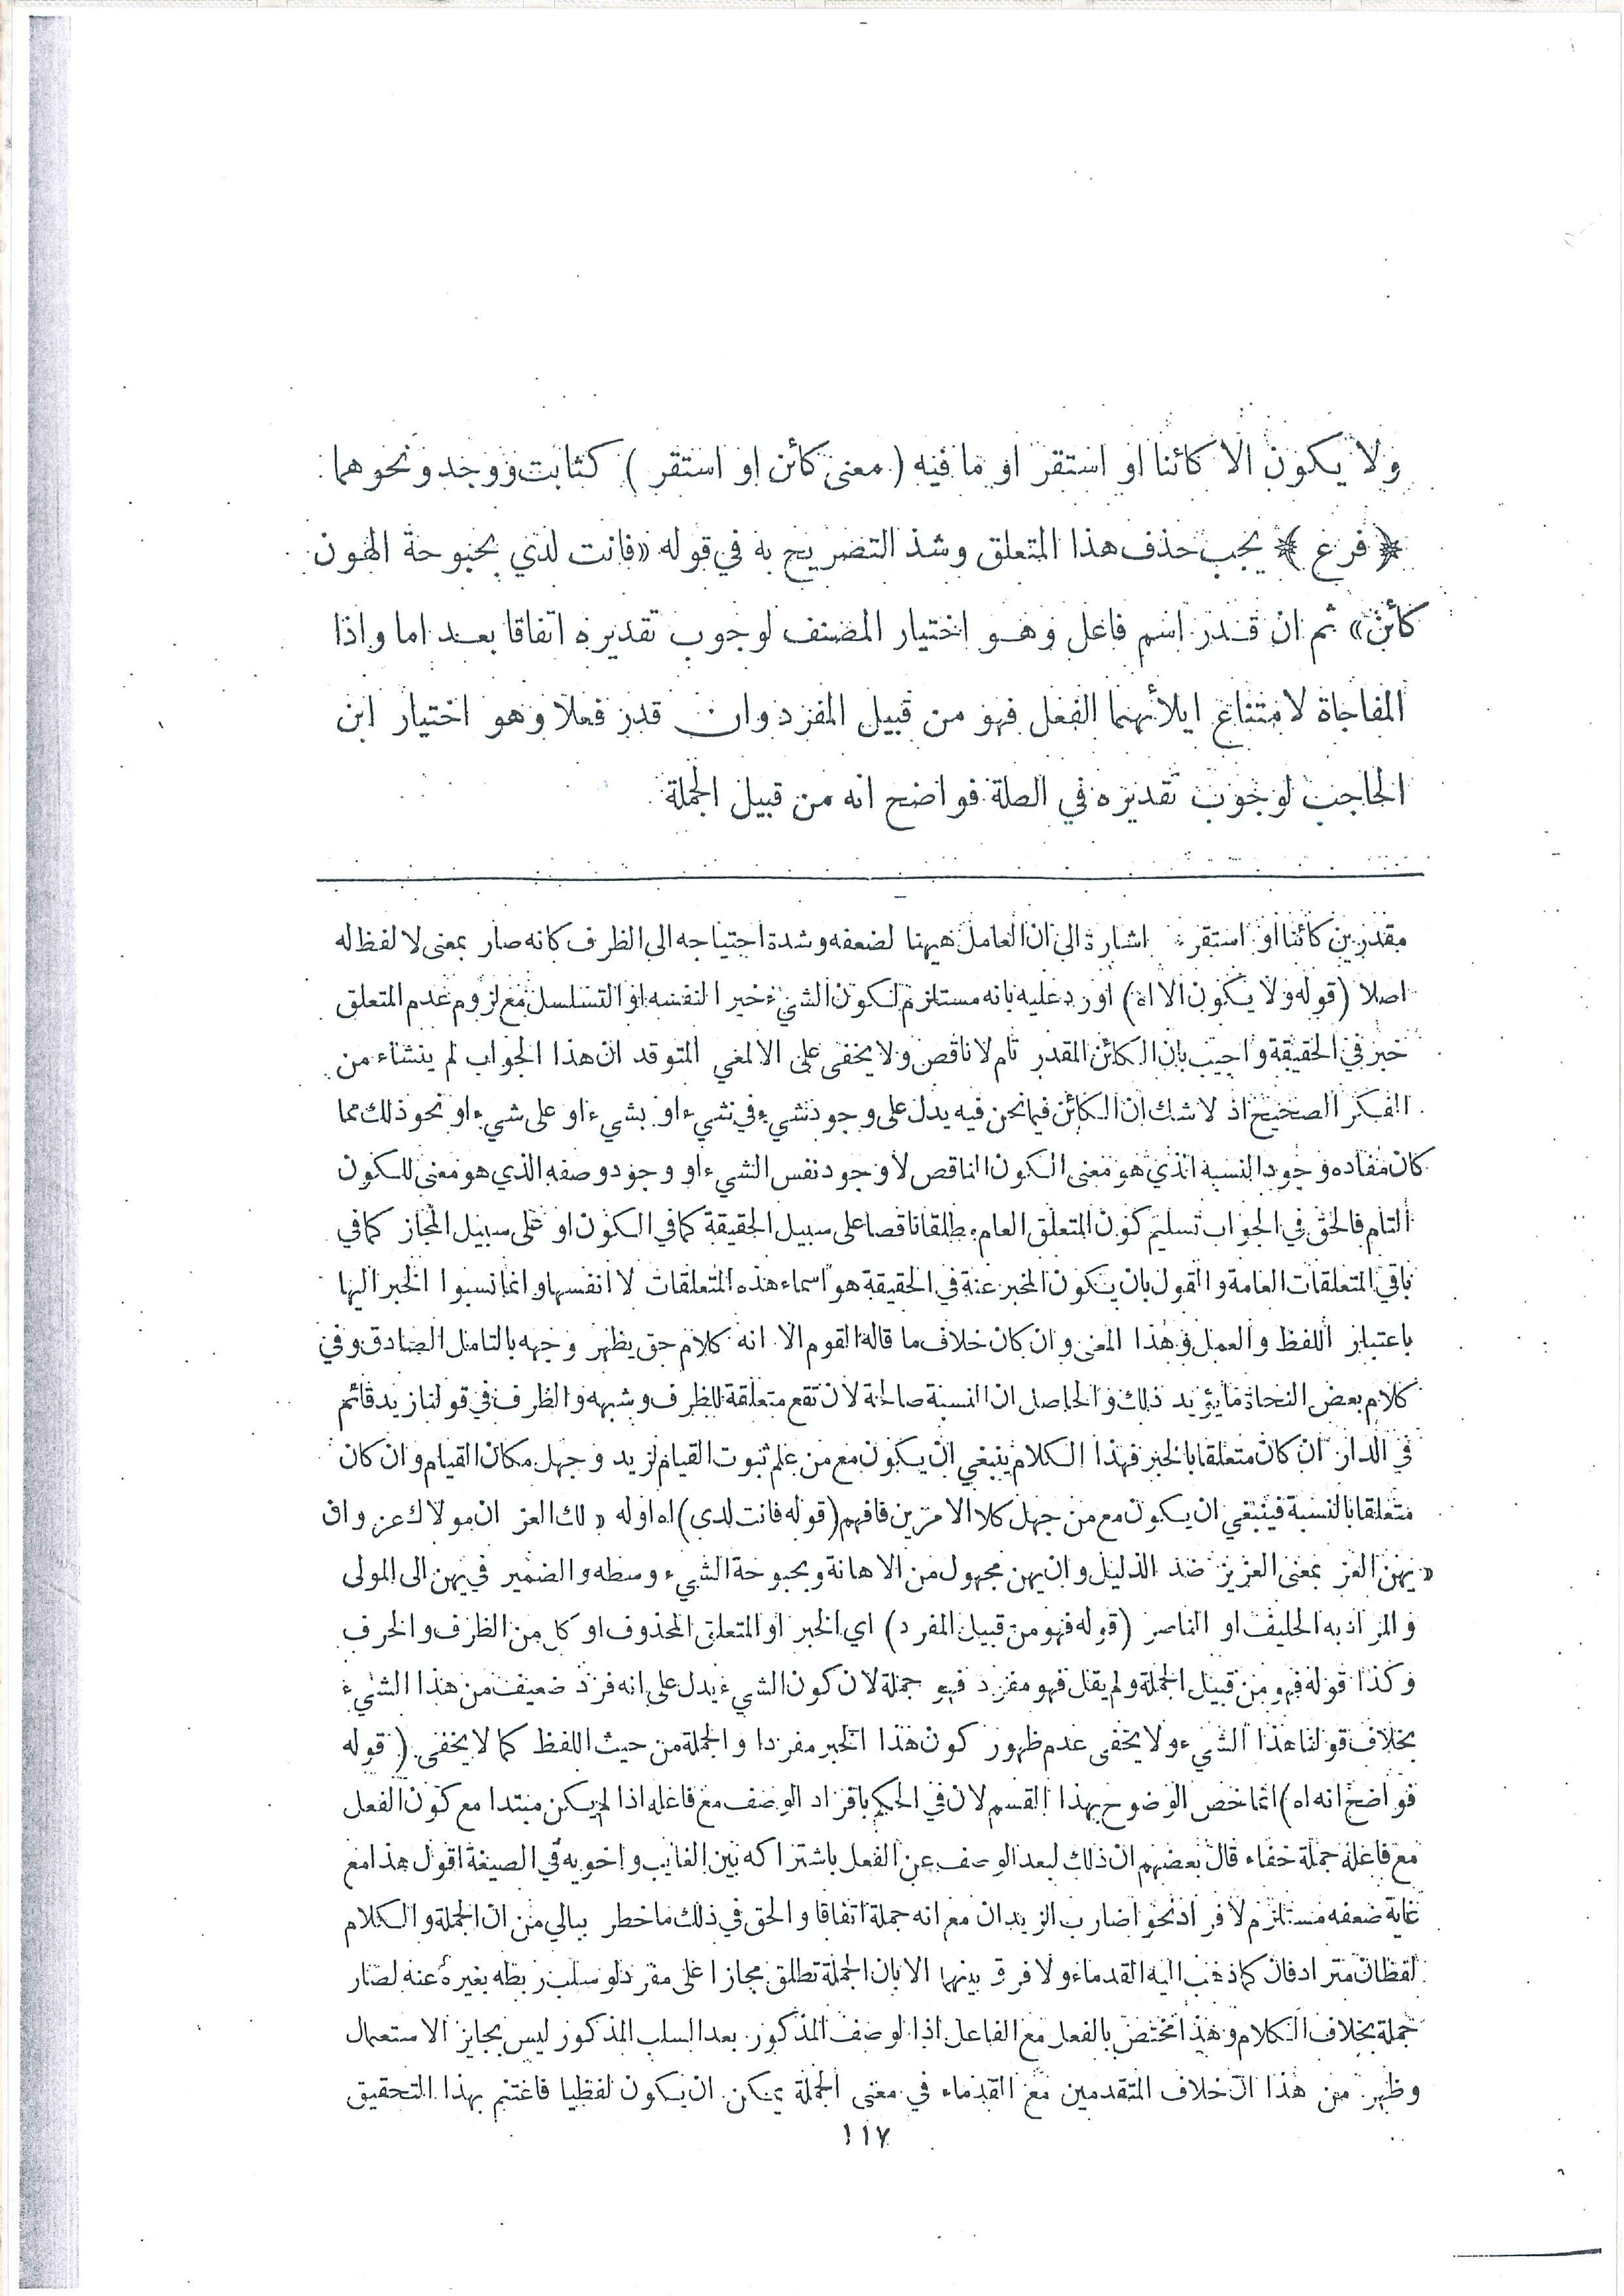 ولا يكون الا كائنا او استقر او ما فيه (معنى كائن او استقر) كثابت ووجد ونحوهما
﴿ فرع ﴾ يجب حذف هذا المتعلق وشذ التصريح به في قوله «فانت لدي بحبوحة الهون
كائن» ثم ان قدر اسم فاعل وهو اختيار المصنف لوجوب تقديره اتفاقا بعد اما واذا
المفاجاة لامتناع ايلائهما الفعل فهو من قبيل المفرد وان قدر فعلا وهو اختيار ابن
الحاجب لوجوب تقديره في الصلة فواضح انه من قبيل الجملة
مقدرين كائنا او استقر : اشارة الى ان العامل ههنا لضعفه وشدة احتياجه الى الظرف كانه صار بمعنى لا لفظ له
اصلا (قوله ولا يكون الا اه) اورد عليه بانه مستلزم لكون الشيء خبر النفسه او التسلسل مع لزوم عدم المتعلق
خبر في الحقيقة واجيب بان الكائن المقدر تام لا ناقص ولا يخفى على الالمعي المتوقد ان هذا الجواب لم ينشاء من
الفكر الصحيح اذ لا شك ان الكائن فيما نحن فيه يدل على وجود شيء في شيء او بشيء او على شيء او نحو ذلك مما
كان مفاده وجود النسبة الذي هو معنى الكون الناقص لا وجود نفس الشيء او وجود وصفه الذي هو معنى للكون
التام فالحق في الجواب تسليم كون المتعلق العام مطلقا ناقصا على سبيل الحقيقة كما في الكون او على سبيل المجاز كما في
باقي المتعلقات العامة والقول بان يكون المخبر عنه في الحقيقة هو اسماء هذه المتعلقات لا انفسها وانما نسبوا الخبر اليها
باعتبار اللفظ والعمل وهذا المعنى وان كان خلاف ما قاله القوم الا انه كلام حق يظهر وجهه بالتامل الصادق وفي
كلام بعض النحاة ما يؤيد ذلك والحاصل ان النسبة صالحة لان تقع متعلقة للظرف وشبهه والظرف في قولنا زيد قائم
في الدار ان كان متعلقا بالخبر فهذا الكلام ينبغي ان يكون مع من علم ثبوت القيام لزيد وجهل مكان القيام وان كان
متعلقا بالنسبة فينبغي ان يكون مع من جهل كلا الامرين فافهم (قوله فانت لدى) اه اوله « لك العز ان مولاك عز وان
« يهن العز بمعنى العزيز ضد الذليل وان يهن مجهول من الاهانة وبحبوحة الشيء وسطه والضمير في يهن الى المولى
والمراد به الحليف او الناصر (قوله فهو من قبيل المفرد) اي الخبر او المتعلق المحذوف او كل من الظرف والحرف
وكذا قوله فهو من قبيل الجملة ولم يقل فهو مفرد فهو جملة لان كون الشيء يدل على انه فرد ضعيف من هذا الشيء
بخلاف قولنا هذا الشيء ولا يخفى عدم ظهور كون هذا الخبر مفردا والجملة من حيث اللفظ كما لا يخفى (قوله
فواضح انه اه) انما خص الوضوح بهذا القسم لان في الحكم بافراد الوصف مع فاعله اذا لم يكن مبتدا مع كون الفعل
مع فاعله جملة خفاء قال بعضهم ان ذلك لبعد الوصف عن الفعل باشتراكه بين الغايب واخويه في الصيغة اقول هذا مع
غاية ضعفه مستلزم لافراد نحو اضارب الزيدان مع انه جملة اتفاقا والحق في ذلك ما خطر ببالي من ان الجملة والكلام
لفظان مترادفان كما ذهب اليه القدماء ولا فرق بينهما الا بان الجملة تطلق مجازا على مفرد لو سلب ربطه بغيره عنه لصار
جملة بخلاف الكلام وهذا مختص بالفعل مع الفاعل اذا لوصف المذكور بعد السلب المذكور ليس بجايز الاستعمال
وظهر من هذا ان خلاف المتقدمين مع القدماء في معنى الجملة يمكن ان يكون لفظيا فاغتنم بهذا التحقيق
١١٧